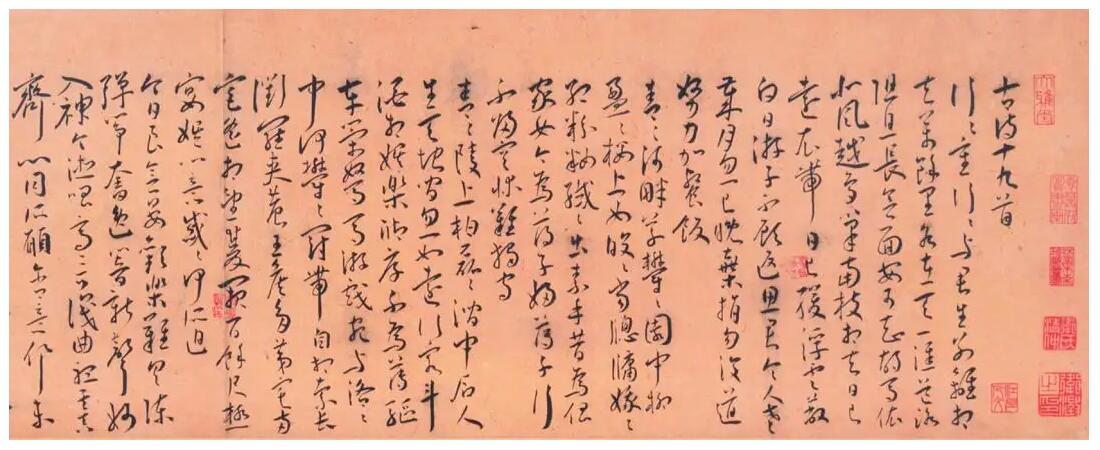 古诗十九首
行ゝ重行ゝ与君生别離相
去萬餘里各在天一涯道路
阻且長會面安可知胡馬依
北風越鳥巢南枝相去日已
遠衣帶日已緩浮雲蔽
白日游子不顧返思君令人老
歲月忽已晚棄捐勿復道
努力加餐飯
青ゝ河畔草鬱ゝ園中柳
盈ゝ樓上女皎ゝ當窗牖娥ゝ
紅粉粧纖ゝ出素手昔為倡
家女今為蕩子婦蕩子行
不歸空床難獨守
青ゝ陵上柏磊ゝ澗中石人
生天地间忽如遠行客斗
酒相娛樂聊厚不為薄驅
車策駑馬游戲宛与洛ゝ
中何鬱ゝ冠帶自相索長
衢羅夾巷王侯多第宅兩
宮遥相望雙闕百餘尺極
宴娛心意慼ゝ何所迫
今日良宴會歡樂難具陳
彈筝奮逸響新聲妙
入神令德唱高言識曲聽其真
齊心同所願含意俱未